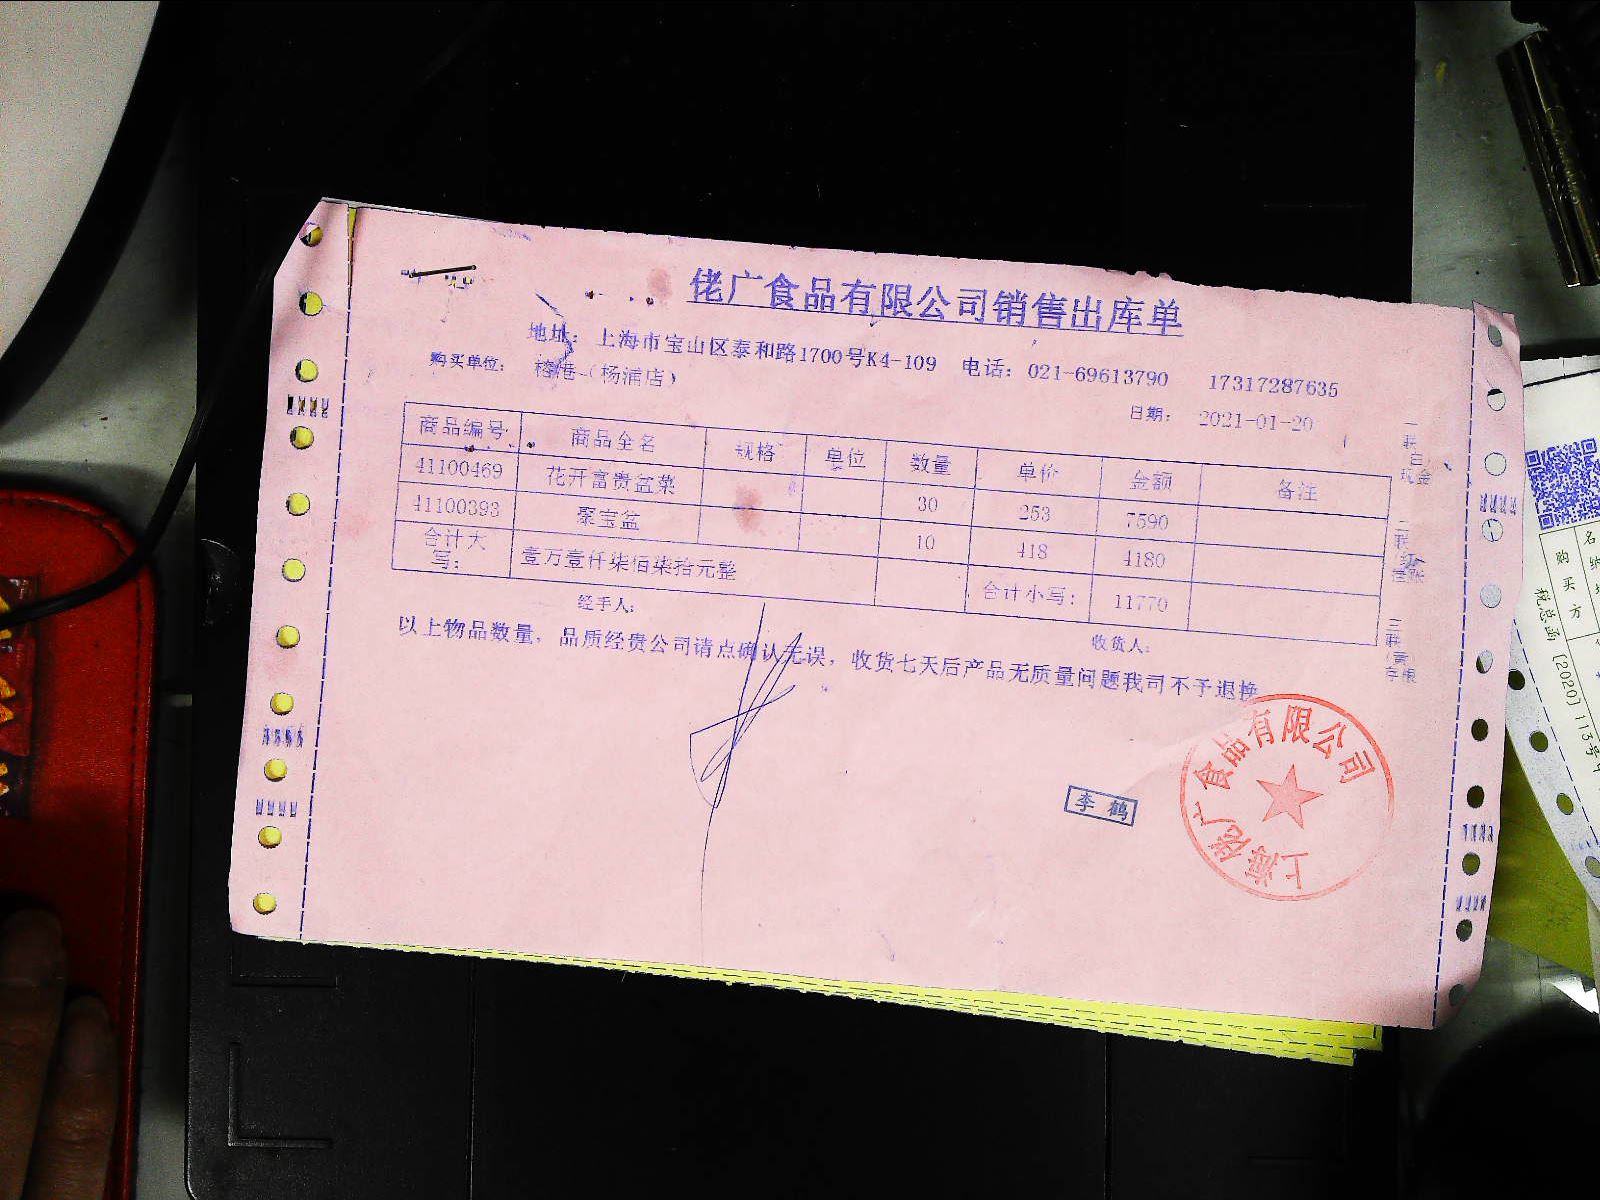 佬广食品有限公司销售出库单
地址：上海市宝山区泰和路1700号K4-109 电话：021-69613790 17317287635
购买单位： 榕港（杨浦店）
日期： 2021-01-20
商品编号 商品全名 规格 单位 数量 单价 金额 备注
41100469 花开富贵盆菜 30 253 7590
41100393 聚宝盆 10 418 4180
合计大写： 壹万壹仟柒佰柒拾元整 合计小写： 11770
经手人： 收货人：
以上物品数量，品质经贵公司请点确认无误，收货七天后产品无质量问题我司不予退换
李鹤
上海佬广食品有限公司
一联（白）现金
二联（红）挂账
三联（黄）存根
购买方
税总函［2020］113号